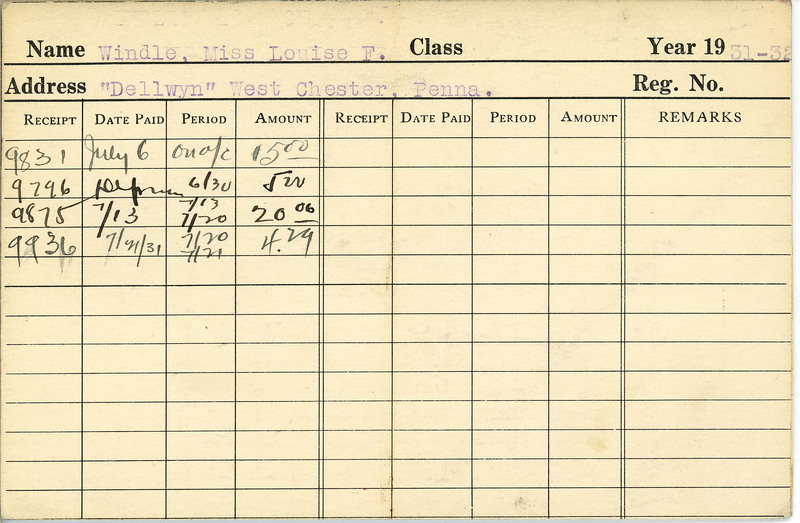 Name Windle, Miss Louise F. Class Year 19 31-32
Address "Dellwyn" West Chester, Penna. Reg. No.
RECEIPT DATE PAID PERIOD AMOUNT RECEIPT DATE PAID PERIOD AMOUNT REMARKS
9831 July 6 on a/c 15 00
9796 6/30 5 00
7/13
9875 7/13 7/20 20 06
9936 7/21/31 7/20 4.29
7/21